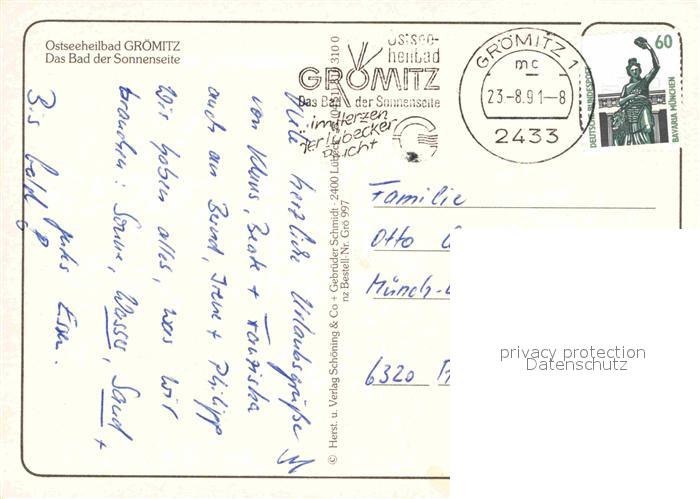 Ostseeheilbad GRÖMITZ
Das Bad der Sonnenseite
Ostsee-
heilbad
GRÖMITZ
Das Bad der Sonnenseite
im Herzen
der Lübecker
Bucht
GRÖMITZ 1
mc
23-8.91-8
2433
60
DEUTSCHE BUNDESPOST
BAVARIA MÜNCHEN
Viele herzliche Urlaubsgrüße
von Klaus, Beate + Franziska
auch an Bernd, Irene + Philipp
Wir haben alles, was wir
brauchen: Sonne, Wasser, Sand +
Bis bald
© Herst. u. Verlag Schöning & Co + Gebrüder Schmidt · 2400 Lübeck
nz Bestell-Nr. Grö 997
Familie
Otto
Münch-
6320
privacy protection
Datenschutz